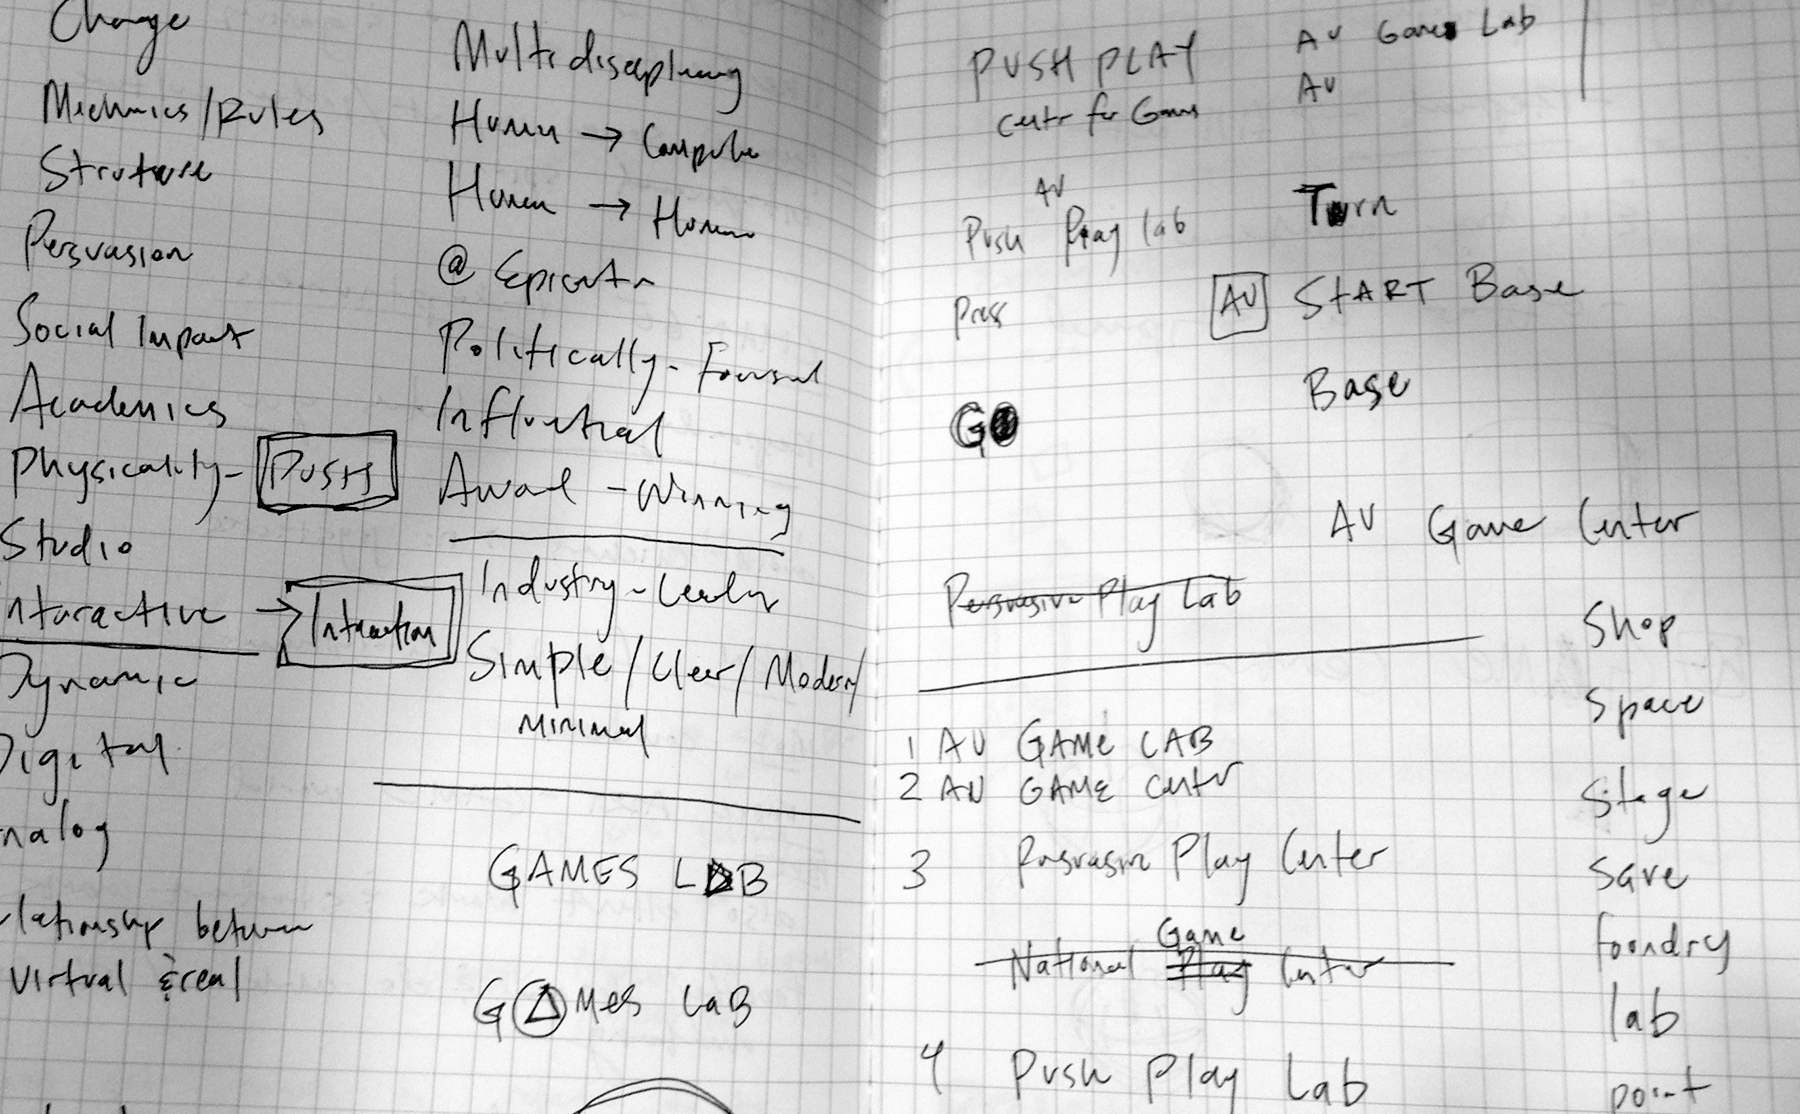 Change
Mechanics/Rules
Structure
Persuasion
Social Impact
Academics
Physicality - PUSH
Studio
Interactive → Interaction
Dynamic
Digital
nalog
lationship between
virtual & real
Multidisciplinary
Human → Computer
Human → Human
@ Epicenter
Politically - Focused
Influential
Award - Winning
Industry - Leader
Simple / Clear / Modern /
Minimal
GAMES LAB
GAMES LAB
PUSH PLAY
Center for Games
AU
Push Play lab
Press
GO
Persuasive Play Lab
1 AU GAME LAB
2 AU GAME Center
3 Persuasive Play Center
Game
National Play Center
4 Push Play Lab
AU Games Lab
AU
Turn
AU START Base
Base
AU Game Center
Shop
Space
Stage
Save
foundry
lab
point